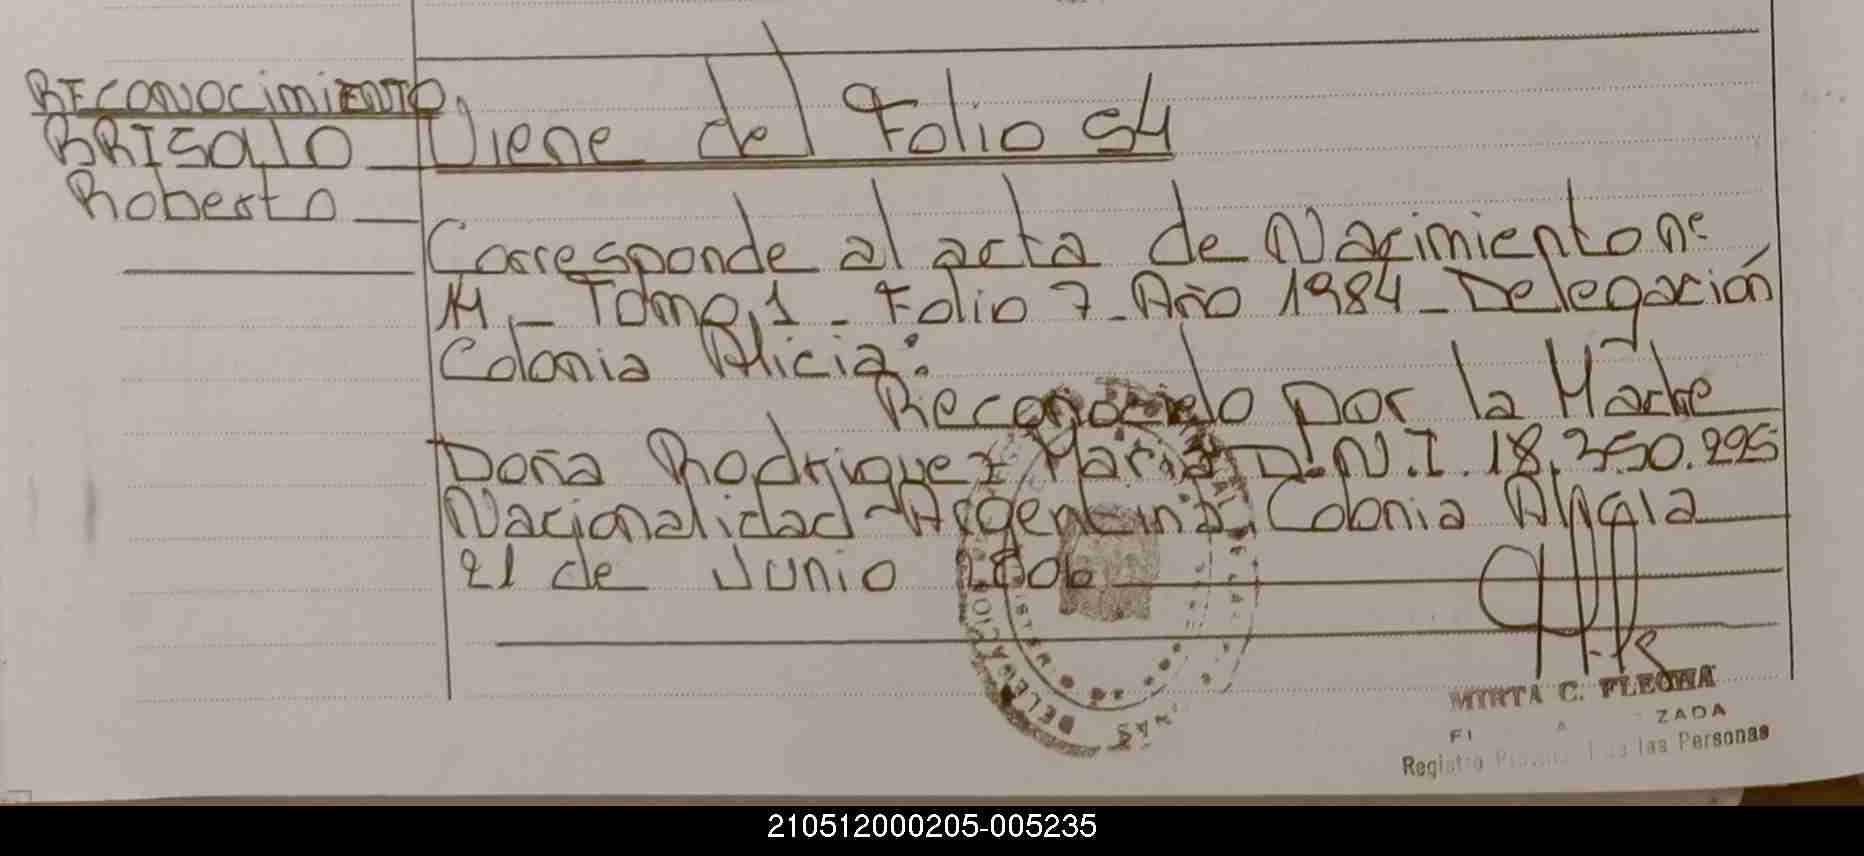 Reconocimiento
BRISOLIO
Roberto
Viene del Folio 54
Corresponde al acta de Nacimiento nº
14 - Tomo, 1 - Folio 7 - Año 1984 - Delegación
Colonia Alicia:
Reconocido por la Madre
Doña Rodriguez Maria D.N.I. 18.350.295
Nacionalidad Argentina. Colonia Alicia
21 de Junio 2006
DELEGACION
MIRTA C. FLECHA
ZADA
Registro las Personas
210512000205-005235